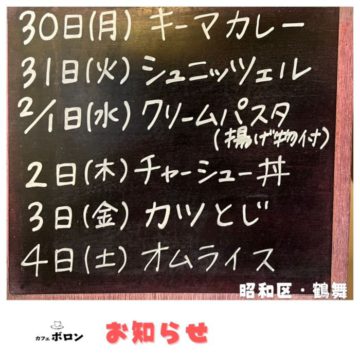 30日(月) キーマカレー
31日(火) シュニッツェル
2/1日(水) クリームパスタ
(揚げ物付)
2日(木) チャーシュー丼
3日(金) カツとじ
4日(土) オムライス
昭和区・鶴舞
カフェ ボロン お知らせ